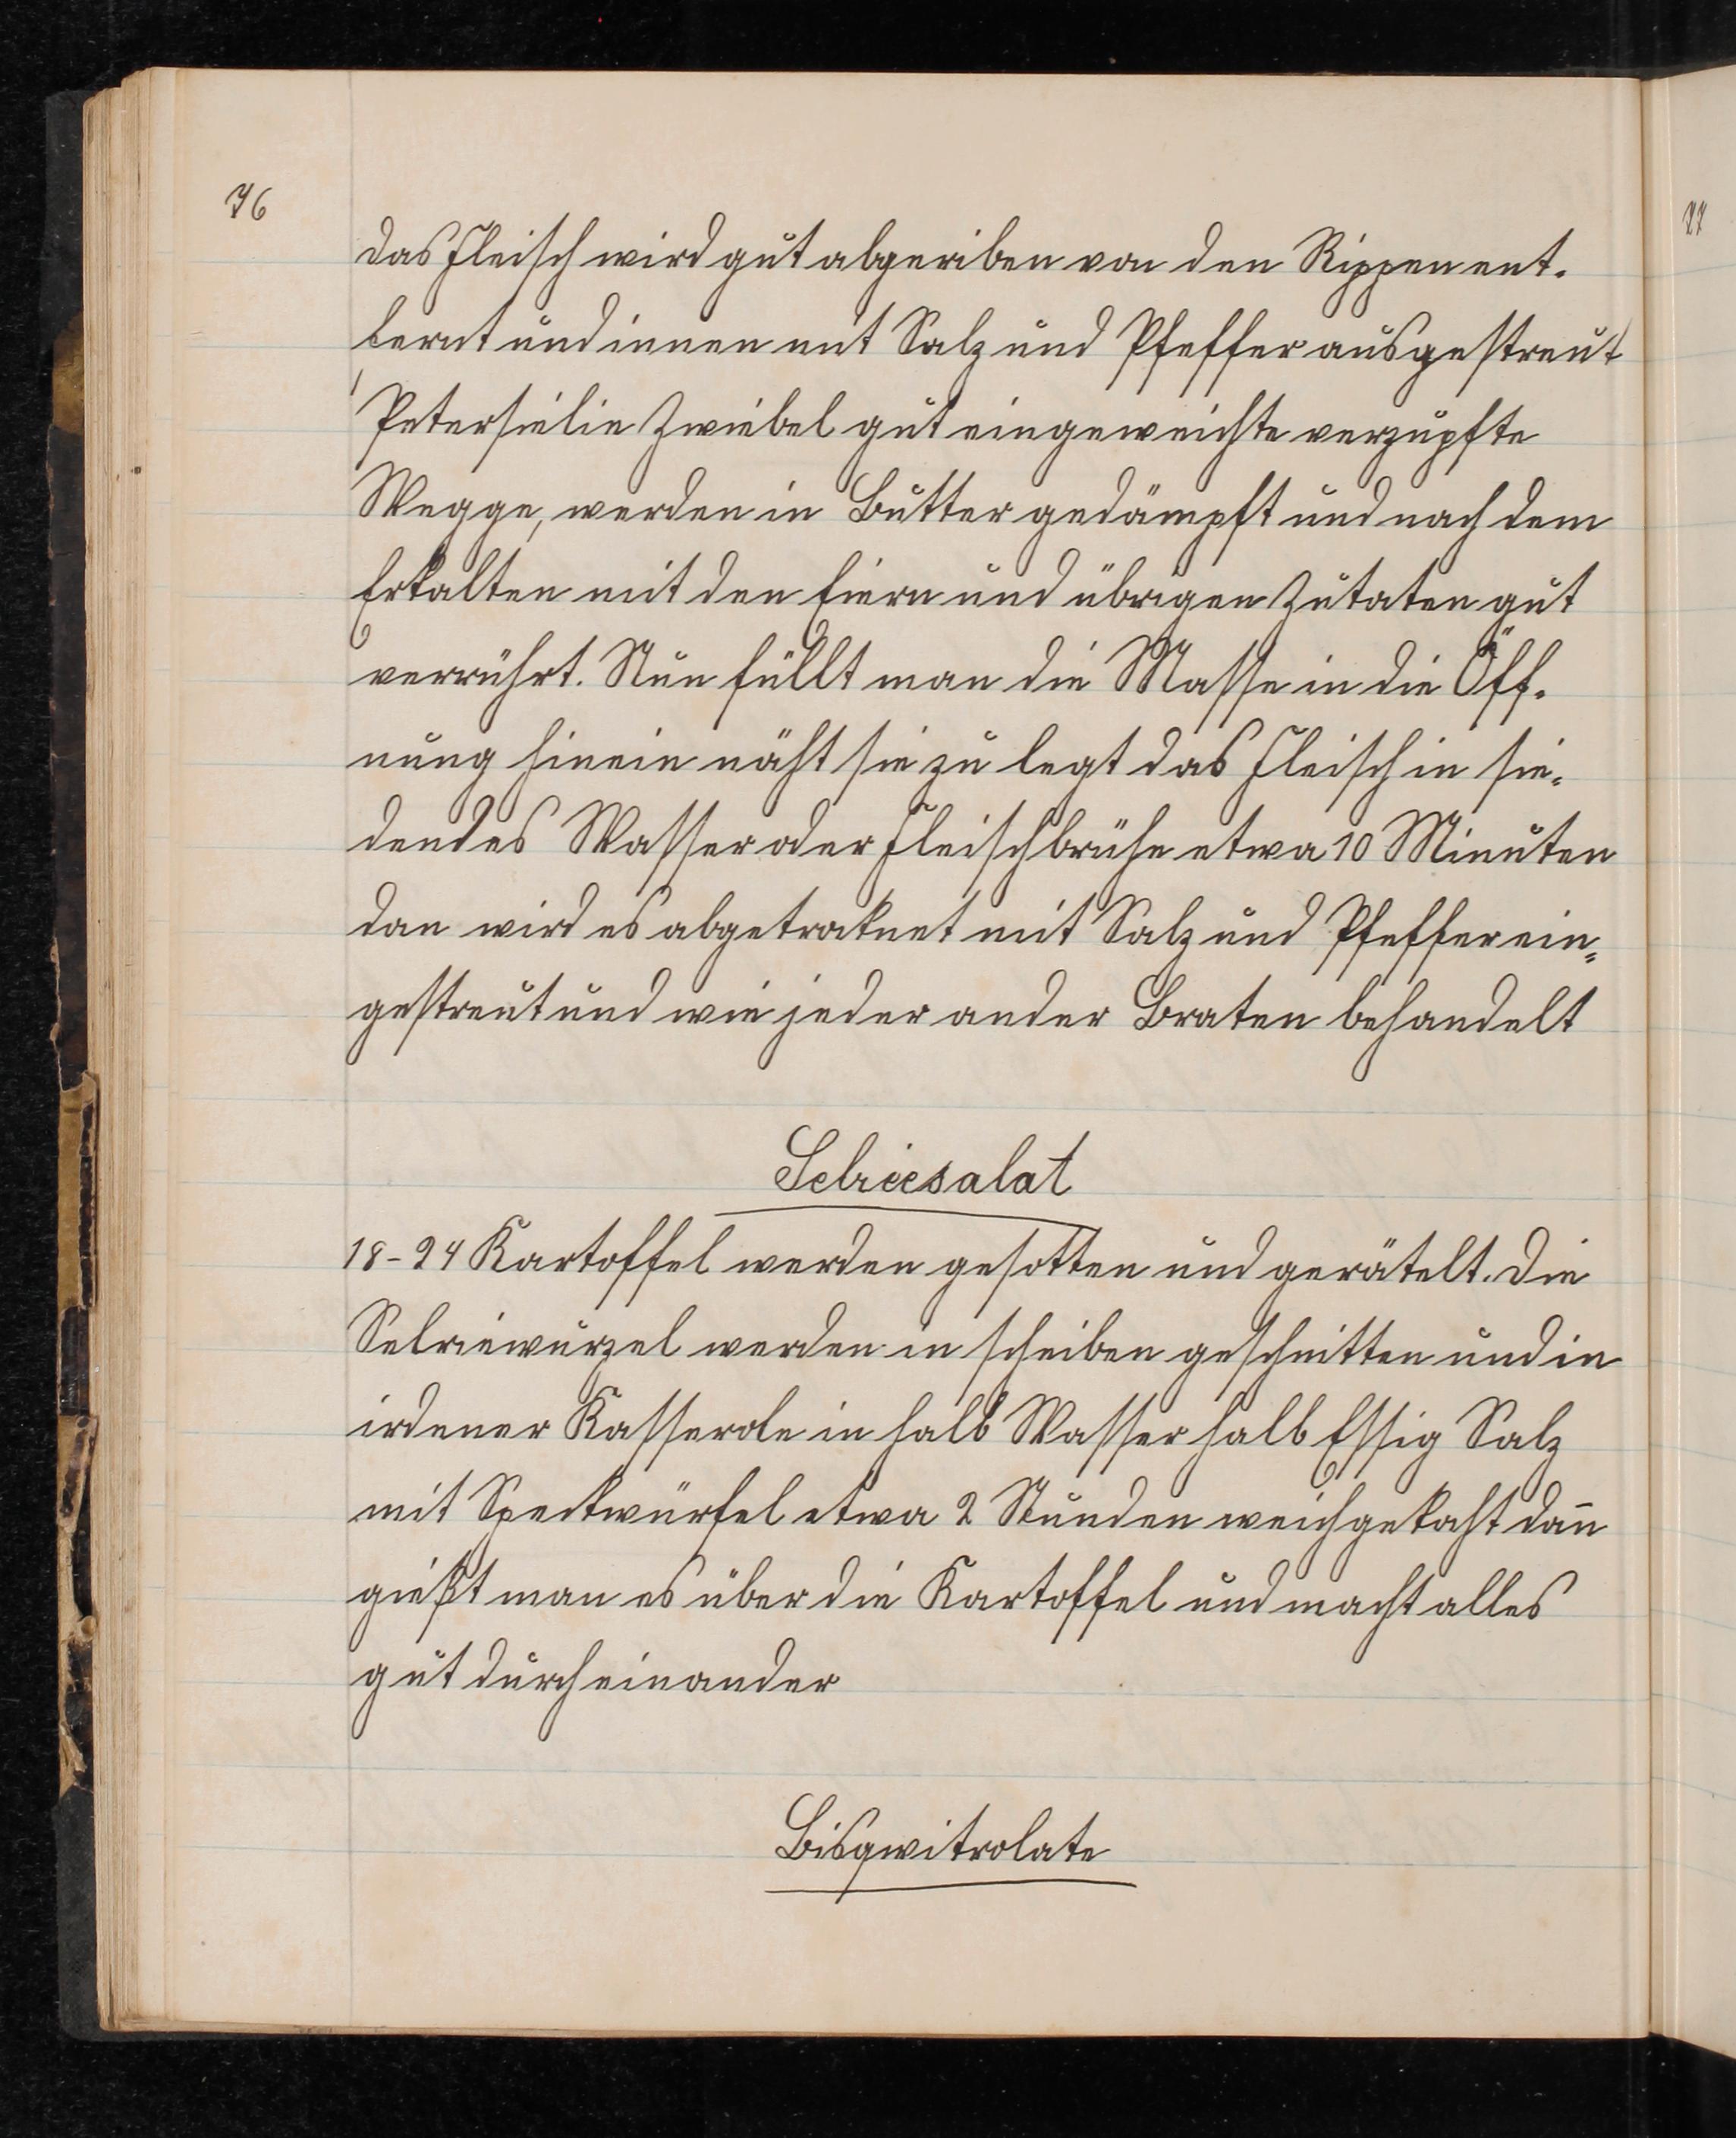 76
das Fleisch wird gut abgeriben von den Rippen ent-
fernt und innen mit Salz und Pfeffer ausgestreut
Petersielie Zwiebel gut eingeweichte verzupfte
Wegge, werden in Butter gedämpft und nach dem
Erkalten mit den Eiern und übrigen Zutaten gut
verrührt. Nun füllt man die Masse in die Öff-
nung hinein näht sie zu legt das Fleisch in sie-
dendes Wasser oder Fleischbrühe etwa 10 Minuten
dan wird es abgetroknet mit Salz und Pfeffer ein-
gestreut und wie jeder ander Braten behandelt
Selriesalat
18-24 Kartoffel werden gesotten und gerätelt. Die
Selriewurzel werden in scheiben geschnitten und in
irdener Kasserole in halb Wasser halb Essig Salz
mit Speckwürfel etwa 2 Stunden weichgekocht dan̄
gießt man es über die Kartoffel und macht alles
gut durcheinander
Bisqwitrolate
77